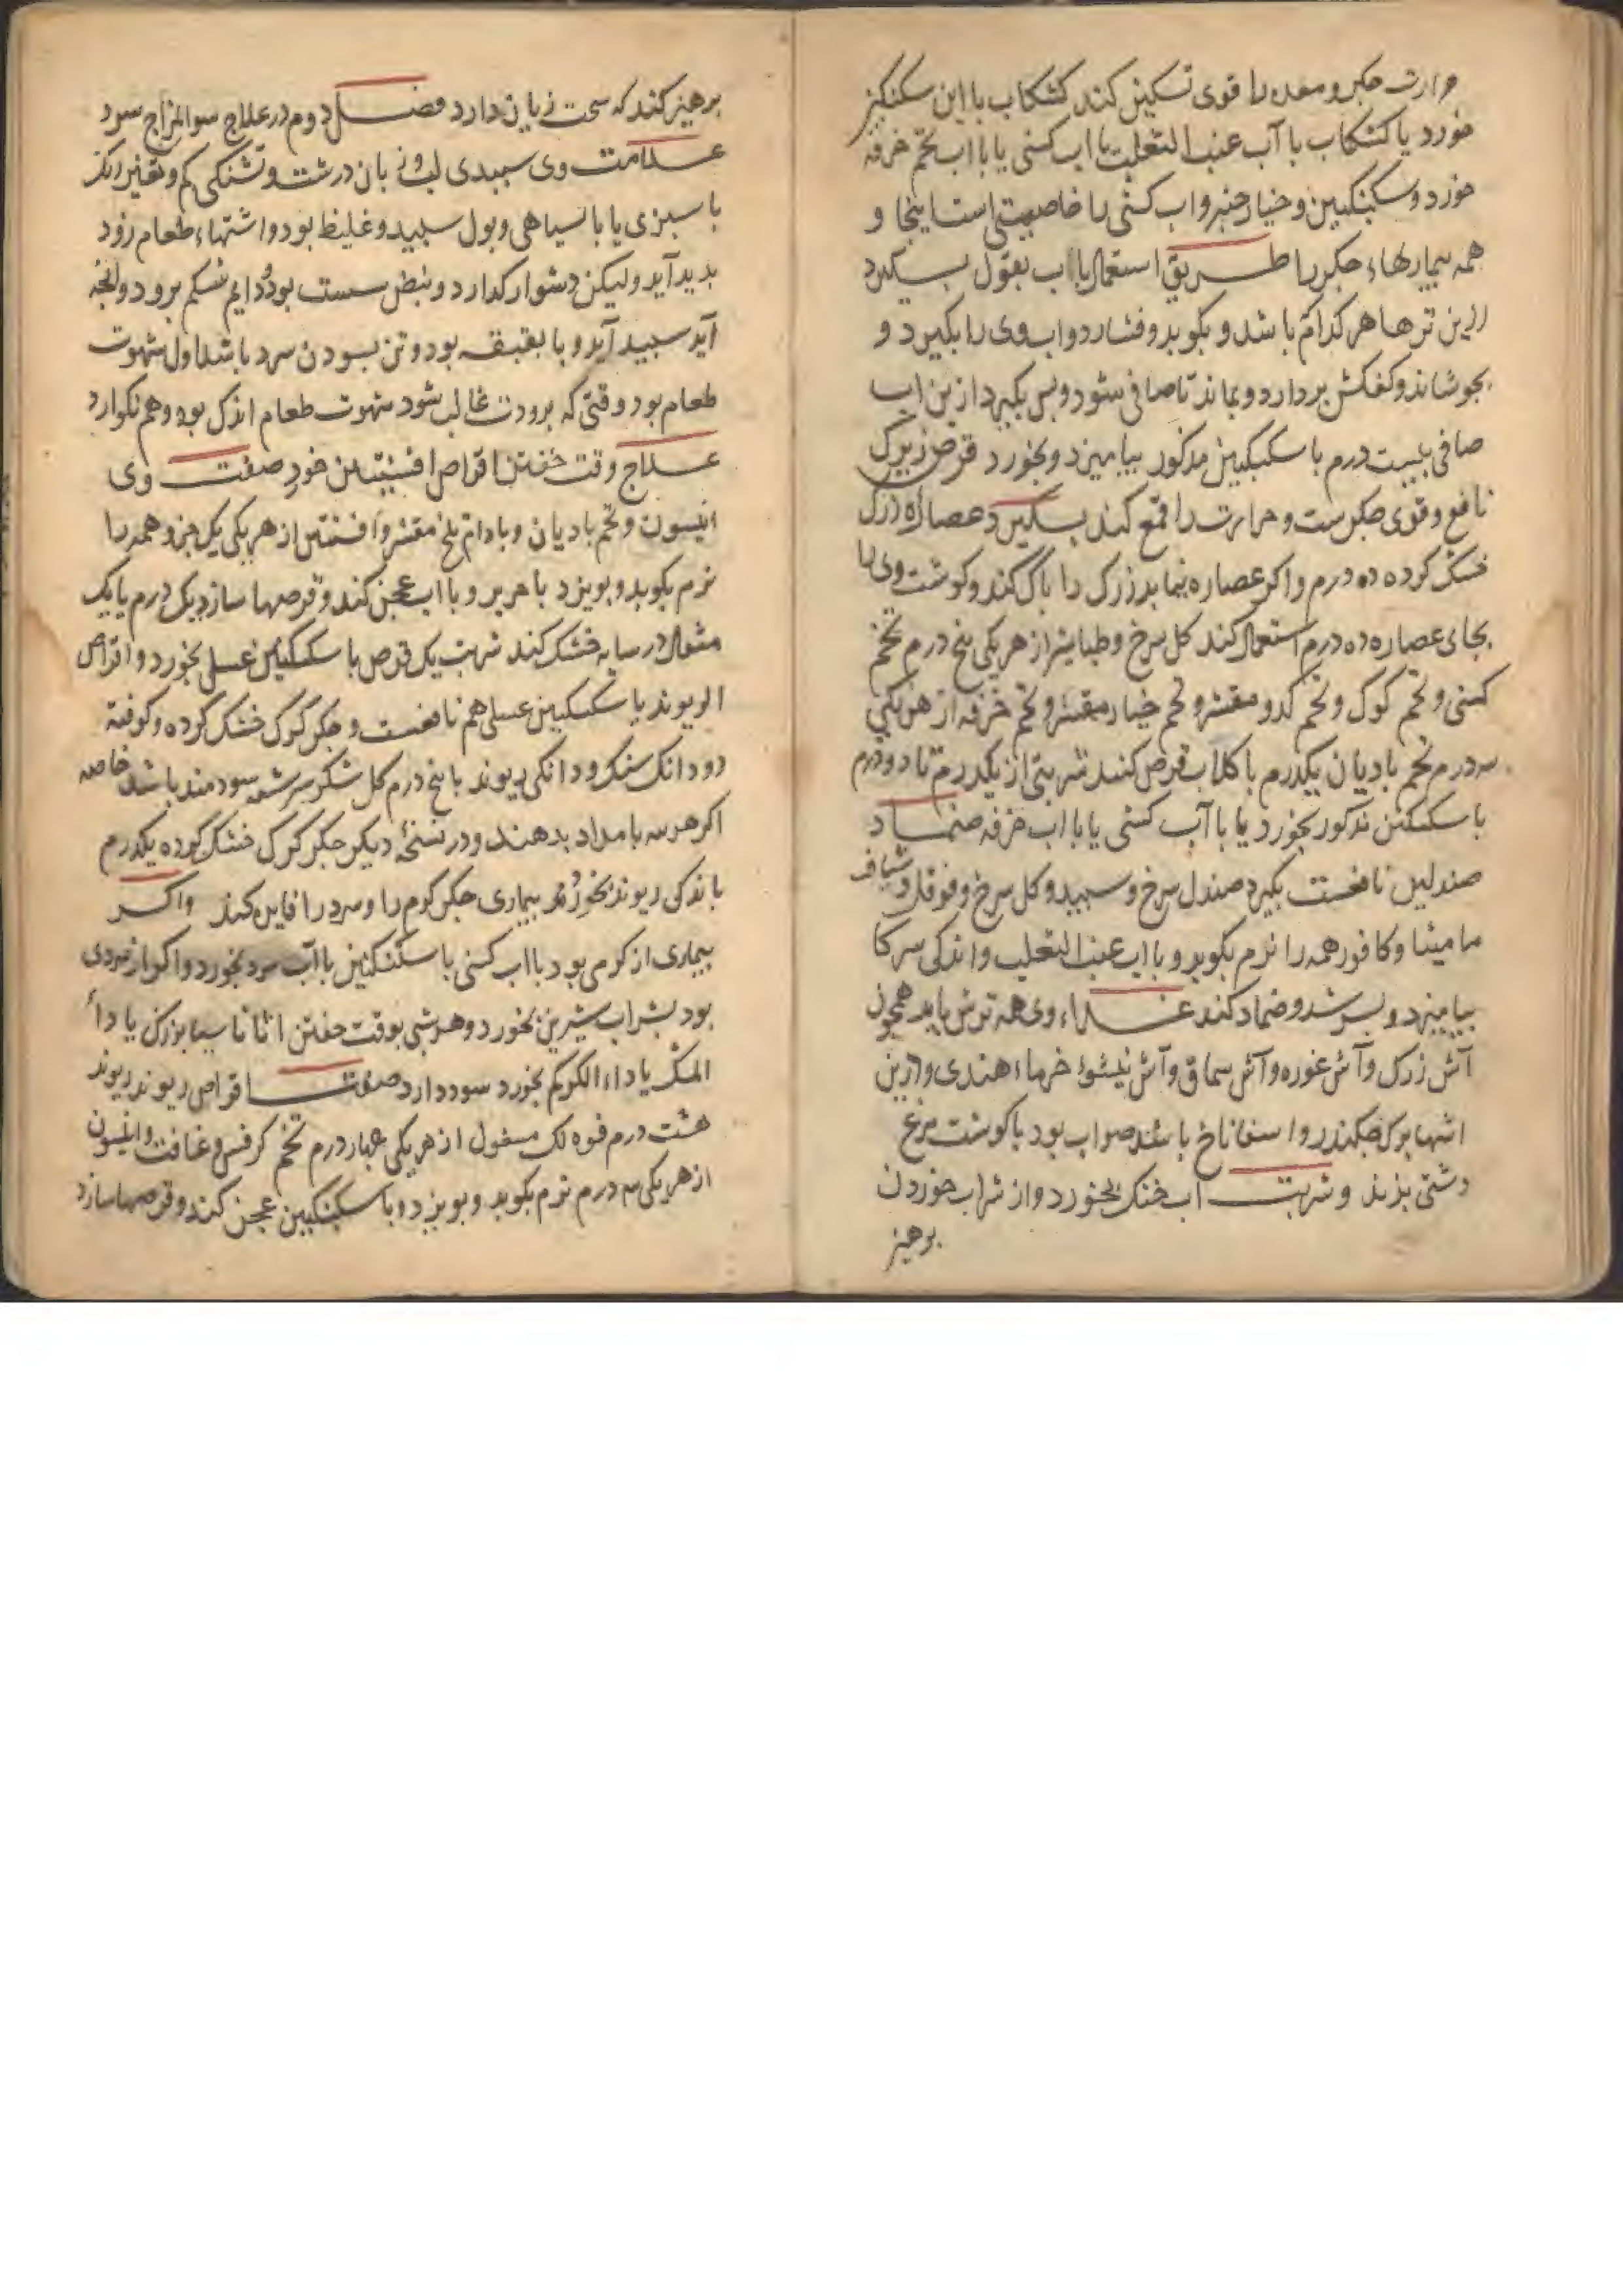 حرارت جکر و معده را قوی تسکین کند کشکاب با این سکنکبین
خورد یا کشکاب با آب عنب الثعلب یا اب کسنی یا با اب تخم خرفه
خورد و سکنکبین و خیار چنبر و اب کسنی را خاصیتی است اینجا و
همه بیماریهاء جکر را طریق استعمال با اب بقول بسکیرد
ازین ترها هر کدام باشد و بکوبد و فشارد و اب وی را بکیرد و
بجوشاند و کفکش بردارد و بماند تا صافی شود و بس بکیرد ازین اب
صافی بیست درم با سکنکبین مذکور بیامیزد و بخورد قرص زیرک
نافع و قوی جکرست و حرارت را قمع کند بسکیرد عصاره زرک
خشک کرده ده درم و اکر عصاره نیابد زرک را باک کند و کوشت وی را
بجای عصاره ده درم استعمال کند کل سرخ و طباشیر از هر یکی بنج درم تخم
کسنی و تخم کوک و تخم کدو مقشر و تخم خیار مقشر و تخم خرفه از هر یکی
سه درم تخم بادیان یکدرم با کلاب قرص کنند شربتی از یکدرم تا دو درم
با سکنکبین مذکور بخورد یا با آب کسنی یا با اب خرفه ضماد
صندلین نافعست بکیرد صندل سرخ و سبید و کل سرخ و فوفل و شیاف
مامیثا و کافور همه را نرم بکوبد و با اب عنب الثعلب و اندکی سرکا
بیامیزد و بسرشد و ضماد کند غذاء وی همه ترش باید همچون
آش زرک و آش غوره و آش سماق و آش نیشوء خرماء هندی و ازین
اشها برک جکندر و اسفاناخ باشد صواب بود با کوشت مرغ
دشتی بزند و شربت اب خنک بخورد و از شراب خوردن
برهیز
برهیز کند که سخت زیان دارد فصل دوم در علاج سو المزاج سرد
علامت وی سبیدی لب و زبان درشت و تشنکی کم و تغیر رنک
با سبزی یا با سیاهی و بول سبید و غلیظ بود و اشتهاء طعام زود
بدید آید ولیکن دشوار کدارد و نبض سست بود و دایم شکم برود و انجه
آید سبید آید و با بقبقه بود و تن بسودن سرد باشد اول شهوت
طعام بود و قتی که برودت غالب شود شهوت طعام اندک بود و هم نکوارد
علاج وقت خفتن اقراص افسنتین خورد صفت وی
انیسون و تخم بادیان و بادام تلخ مقشر و افسنتین از هر یکی یک جزو همه را
نرم بکوبد و بویزد با حریر و با اب عجن کند و قرصها سازد یک درم یا یک
مثقال در سایه خشک کند شربت یک قرص با سکنکبین عسلی بخورد و اقراص
الریوند با سکنکبین عسلی هم نافعست و جکر کرک خشک کرده و کوفته
دو دانک سنک و دانکی ریوند با بنج درم کل شکر سرشته سودمند باشد خاصه
اکر هر سه بامداد بدهند و در نسخهٔ دیکر جکر کرک خشک کرده یکدرم
باندکی ریوند بخورند بیماری جکر کرم را و سرد را فایده کند و اکر
بیماری از کرمی بود با اب کسنی با سکنکبین با آب سرد بخورد و اکر از سردی
بود بشراب شیرین بخورد و هر شبی بوقت خفتن اثاناسیا بزرک یا دواء
المسک یا دواء الکرکم بخورد سود دارد صفت اقراص ریوند ریوند
هشت درم فوه لک مغسول از هر یکی جهار درم تخم کرفس و غافت و انیسون
از هر یکی سه درم نرم بکوبد و بویزد و با سکنکبین عجن کند و قرصها سازد